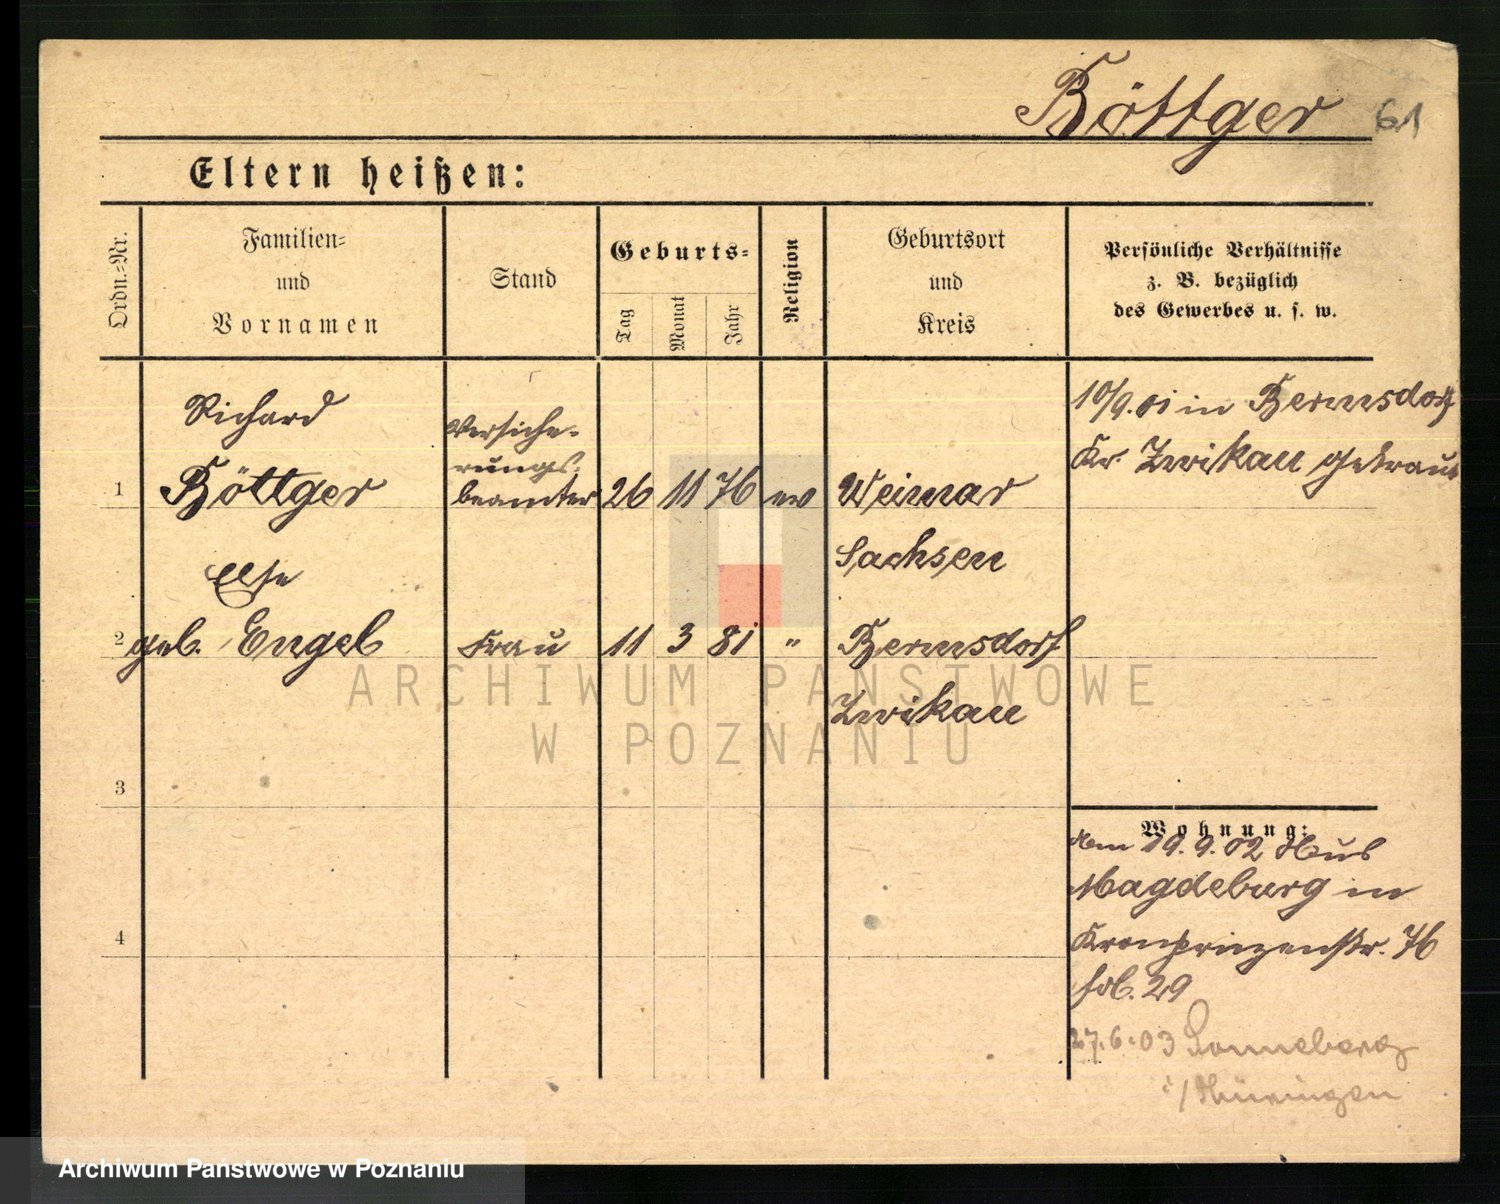 Böttger 61
Eltern heißen:
Ordn.-Nr.
Familien-
und
Vornamen
Stand
Geburts-
Tag
Monat
Jahr
Religion
Geburtsort
und
Kreis
Persönliche Verhältnisse
z. B. bezüglich
des Gewerbes u. s. w.
Richard
1 Böttger
Versiche-
rungs-
beamter
26 11 76 ev
Weimar
Sachsen
10/9. 01 in Bermsdorf
Kr. Zwikau getraut
Else
2 geb. Engel
Frau
11 3 81 "
Bermsdorf
Zwikau
3
4
Wohnung:
19. 9. 02 Aus
Magdeburg in
Kronprinzenstr. 76
29
27.6.03 Sonneberg
i/Thüringen
ARCHIWUM PAŃSTWOWE
W POZNANIU
Archiwum Państwowe w Poznaniu